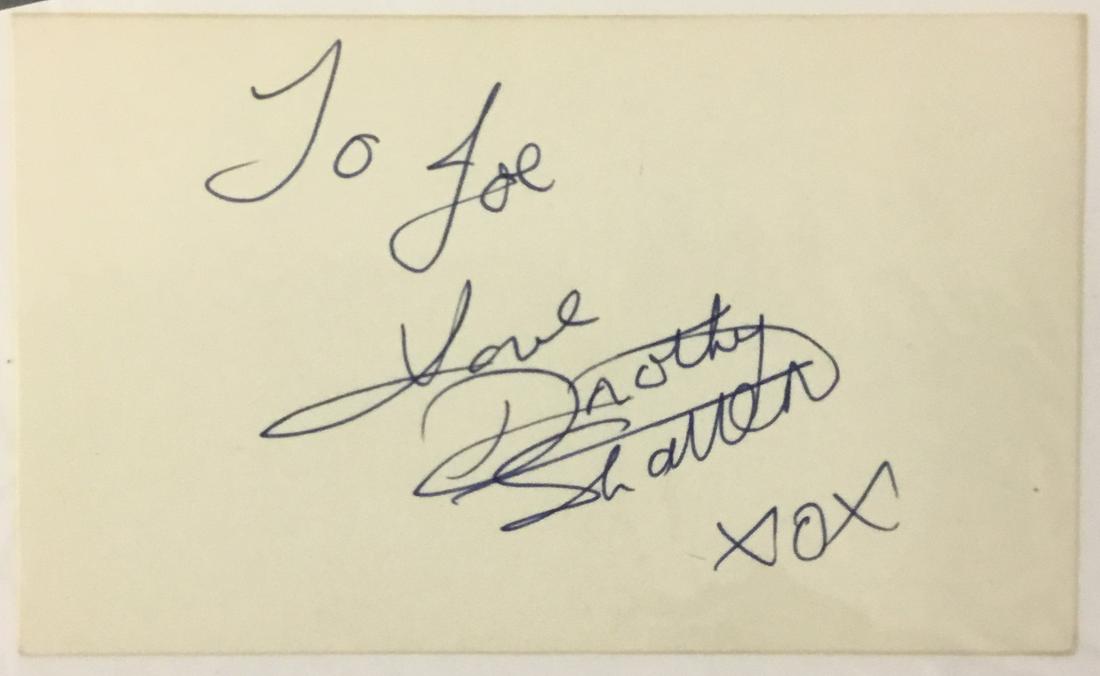 To Joe
Love
Dorothy
Shatten
xox